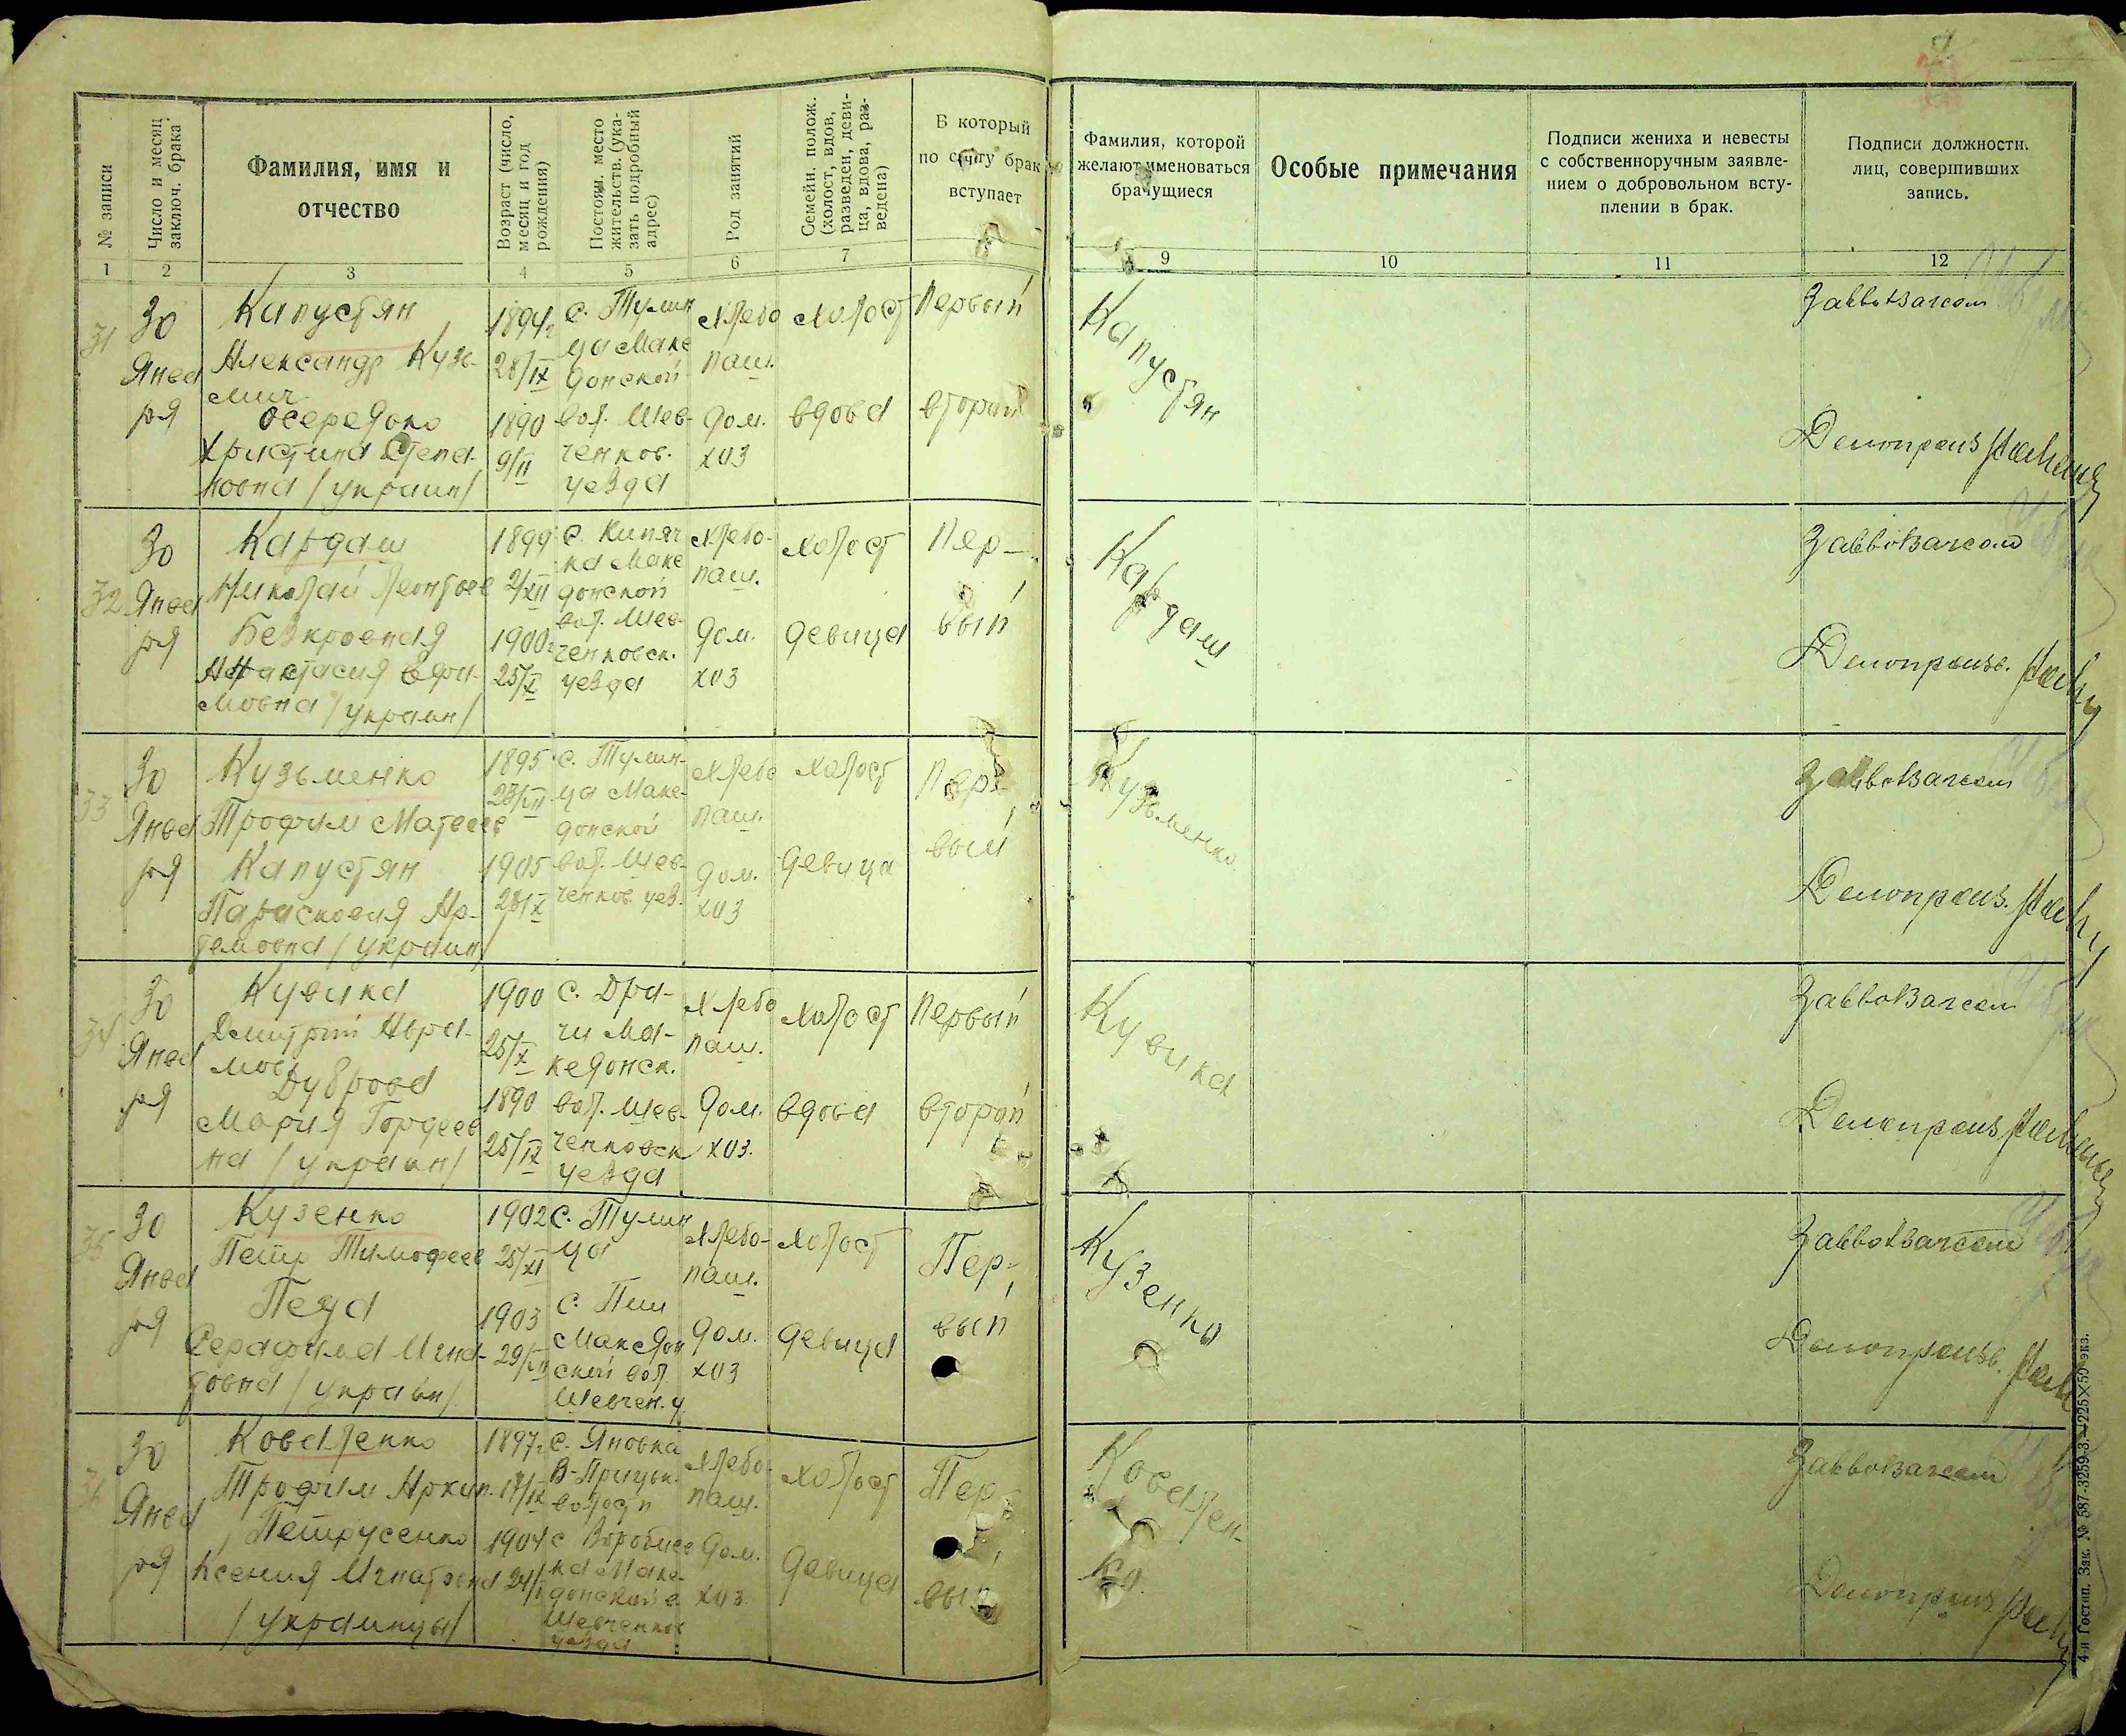 № записи
Число и месяц заключ. брака
Фамилия, имя и
отчество
Возраст (число, месяц и год рождения)
Постоян. место жительств. (указать подробный адрес)
Род занятий
Семейн. полож. (холост, вдов, разведен, девица, вдова, разведена)
В который
по счету брак
вступает
Фамилия, которой
желают именоваться
брачущиеся
Особые примечания
Подписи жениха и невесты
с собственноручным заявле-
нием о добровольном всту-
плении в брак.
Подписи должностн.
лиц, совершивших
запись.
1 2 3 4 5 6 7 9 10 11 12
31
30
Янва
ря
Капустян
Александр Кузь-
мич
Осередько
Христина Степа-
новна /украин/
1894г
28/IX
1890
9/II
с. Тулин
ца Маке
донской
вол. Шев-
ченков.
уезда
Хлебо
паш.
дом.
хоз
холост
вдова
Первый
второй
Капустян
Заввотзагсом
Делопроиз
32
30
Янва
ря
Кардаш
Николай Леонтьев
Безкровная
Анастасия Ефи-
мовна /украин/
1899
2/XII
1900г
25/X
с. Кипяч
ка Маке
донской
вол. Шев-
ченковск.
уезда
Хлебо-
паш.
дом.
хоз
холост
девица
Пер-
вый
Кардаш
Заввотзагсом
Делопроизв.
33
30
Янва
ря
Кузьменко
Трофим Матвеев
Капустян
Парасковия Ар-
темовна /украин/
1895
1905
28/X
с. Тулин-
ца Маке-
донской
вол. Шев-
ченков. уез.
Хлебо
паш.
дом.
хоз
холост
девица
Пер-
вый
Кузьменко
Заввотзагсом
Делопроиз.
34
30
Янва
ря
Кувика
Дмитрий Авра-
мов
Дуброва
Мария Гордеев
на /украин/
1900
25/X
1890
25/IX
с. Дра-
чи Ма-
кедонск.
вол. Шев-
ченковск
уезда
Хлебо
паш.
дом.
хоз.
холост
вдова
Первый
второй
Кувика
Заввотзагсом
Делопроиз
35
30
Янва
ря
Кузенко
Петр Тимофеев
Пеца
Серафима Игна-
товна /украин/
1902
25/XI
1903
с. Тулин
ца
с. Пии
Македон
ской вол.
Шевчен. у
Хлебо-
паш.
дом.
хоз
холост
девица
Пер-
вый
Кузенко
Заввотзагсом
Делопроизв.
36
30
Янва
ря
Коваленко
Трофим Архип.
Петрусенко
Ксения Игнатовна
/украинцы/
1897г
17/IX
1904
с. Яновка
В-Прицьк.
волости
с Воробиев
ка Маке
донской в.
Шевченков
уезда
Хлебо-
паш.
дом.
хоз.
холост
девица
Пер
вый
Ковален-
ко
Заввотзагсом
Делопроиз.
4-я Гостип. Зак. № 587-3259-3.